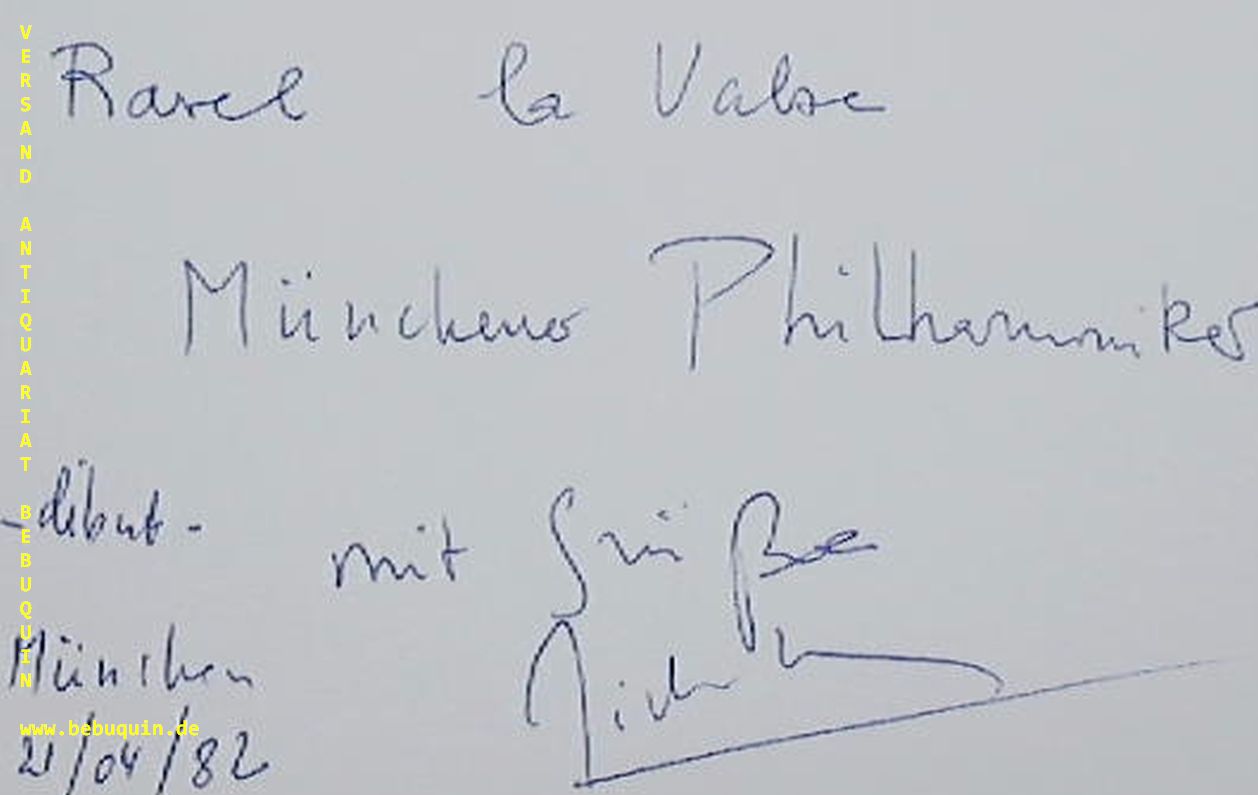 Ravel la Valse
Münchener Philharmoniker
-début-
mit Grüße
München
21/04/82
VERSAND ANTIQUARIAT BEBUQUIN
www.bebuquin.de